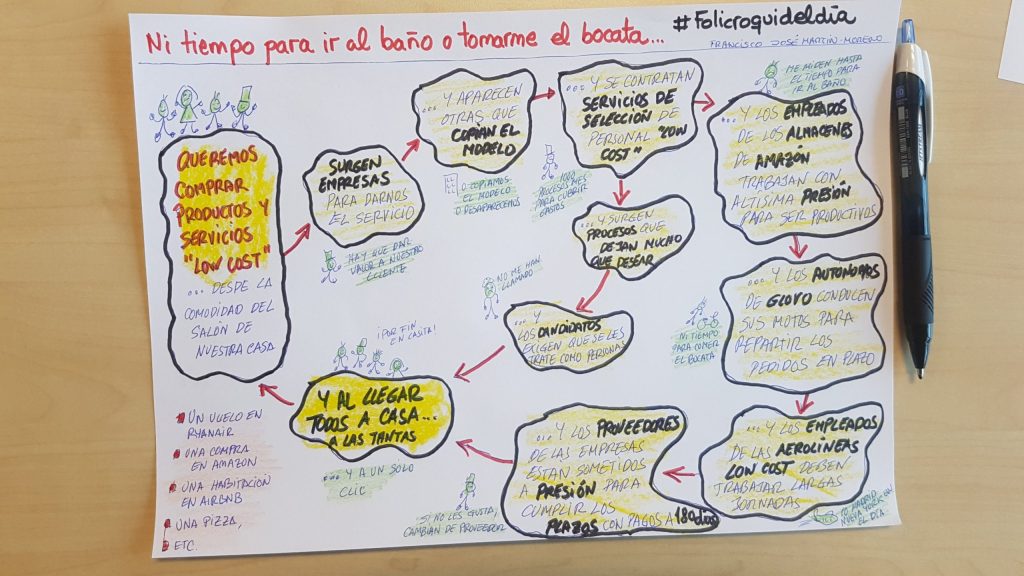 Ni tiempo para ir al baño o tomarme el bocata...
#Folicroquideldía
FRANCISCO JOSÉ MARTÍN-MORENO
QUEREMOS
COMPRAR
PRODUCTOS Y
SERVICIOS
"LOW COST"
... DESDE LA
COMODIDAD DEL
SALÓN DE
NUESTRA CASA
SURGEN
EMPRESAS
PARA DARNOS
EL SERVICIO
HAY QUE DAR
VALOR A NUESTRO
CLIENTE
... Y APARECEN
OTRAS QUE
COPIAN EL
MODELO
O COPIAMOS
EL MODELO
O DESAPARECEMOS
... Y SE CONTRATAN
SERVICIOS DE
SELECCIÓN DE
PERSONAL "LOW
COST"
PROCESOS MES
PARA CUBRIR
GASTOS
ME MIDEN HASTA
EL TIEMPO PARA
IR AL BAÑO
... Y LOS EMPLEADOS
DE LOS ALMACENES
DE AMAZÓN
TRABAJAN CON
ALTISIMA PRESIÓN
PARA SER PRODUCTIVOS
... Y SURGEN
PROCESOS QUE
DEJAN MUCHO
QUE DESEAR
NO ME HAN
LLAMADO
... Y
LOS CANDIDATOS
EXIGEN QUE SE LES
TRATE COMO PERSONAS
... Y LOS AUTONOMOS
DE GLOVO CONDUCEN
SUS MOTOS PARA
REPARTIR LOS
PEDIDOS EN PLAZO
NI TIEMPO
PARA COMER
EL BOCATA
... Y LOS EMPLEADOS
DE LAS AEROLÍNEAS
LOW COST DEBEN
TRABAJAR LARGAS
JORNADAS
MADRID
NUEVA YORK EN
EL DÍA
... Y LOS PROVEEDORES
DE LAS EMPRESAS
ESTAN SOMETIDOS
A PRESIÓN PARA
CUMPLIR LOS
PLAZOS CON PAGOS A 180 días
SI NO LES GUSTA,
CAMBIAN DE PROVEEDOR
¡POR FIN
EN CASITA!
Y AL LLEGAR
TODOS A CASA...
A LAS TANTAS
... Y A UN SOLO
CLIC
UN VUELO EN
RYANAIR
UNA COMPRA
EN AMAZON
UNA HABITACION
EN AIRBNB
UNA PIZZA,
ETC.